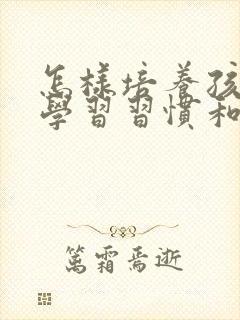 怎樣培養孩
學習習慣和
篤霜焉逝